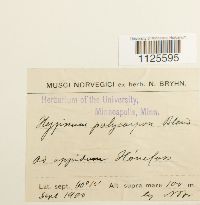 1125595
MUSCI NORVEGICI ex herb. N. BRYHN.
Herbarium of the University,
Minneapolis, Minn.
Hypnum polycarpon Bland
Ad oppidum Hönefoss
Lat. sept. 60° Alt. supra mare 100 m.
Sept 1900